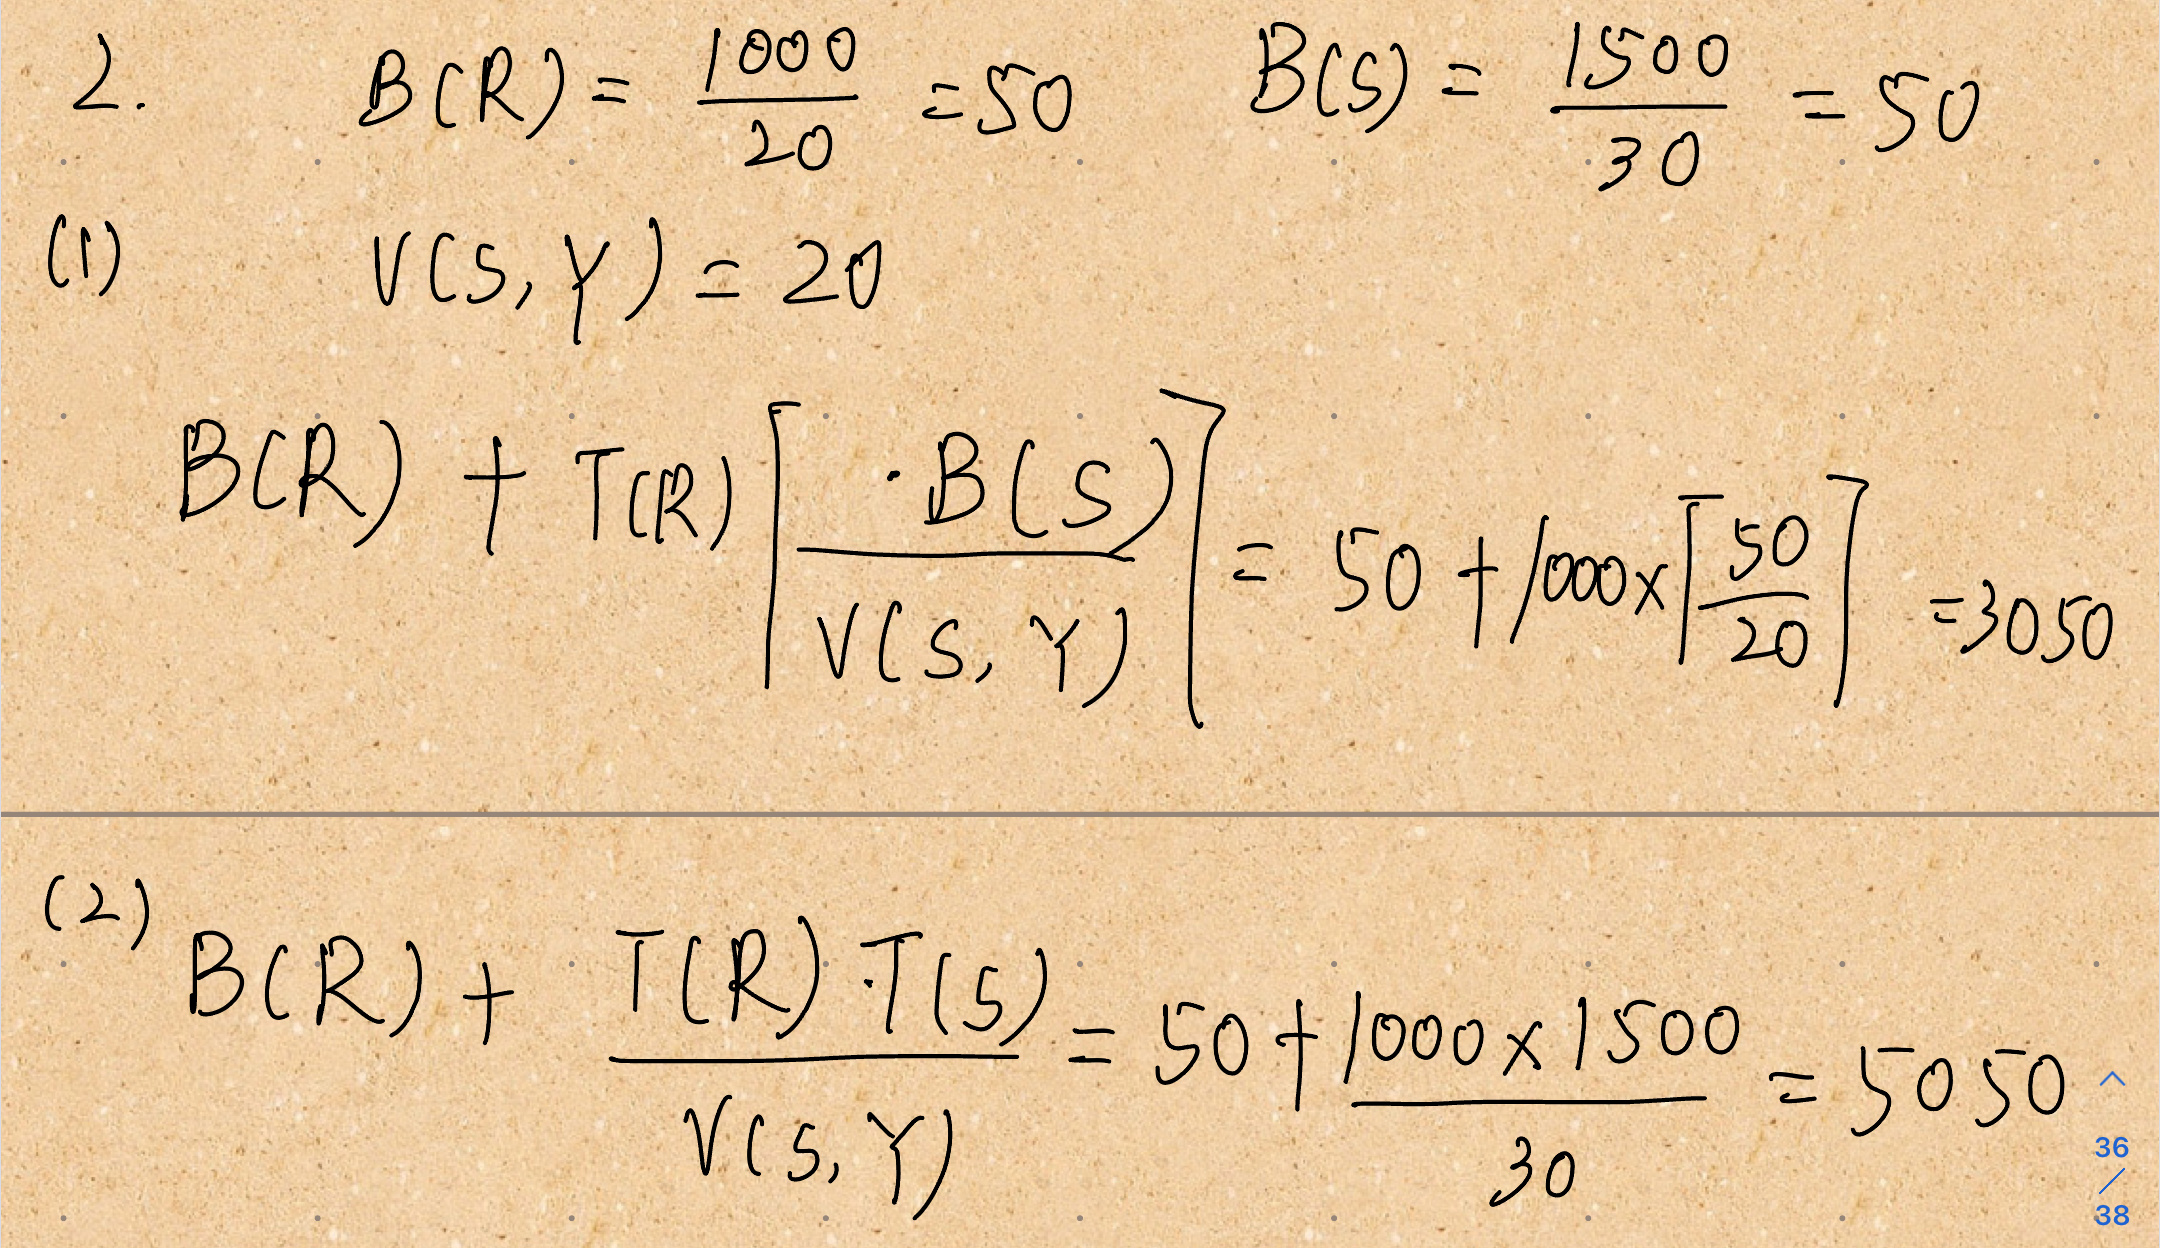 2. B(R) = 1000/20 = 50 B(S) = 1500/30 = 50
(1) V(S, Y) = 20
B(R) + T(R) ⌈ · B(S) / V(S, Y) ⌉ = 50 + 1000 × ⌈ 50/20 ⌉ = 3050
(2) B(R) + T(R) · T(S) / V(S, Y) = 50 + 1000 × 1500 / 30 = 5050
36
/
38